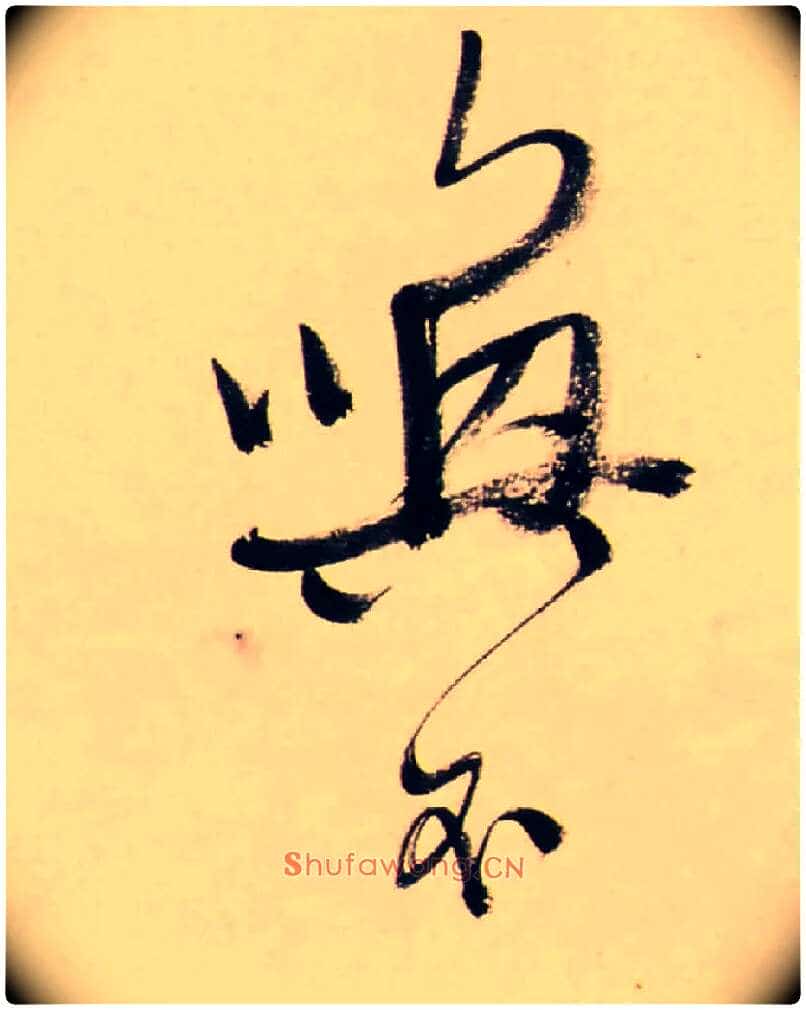 與
不
Shufawang.CN